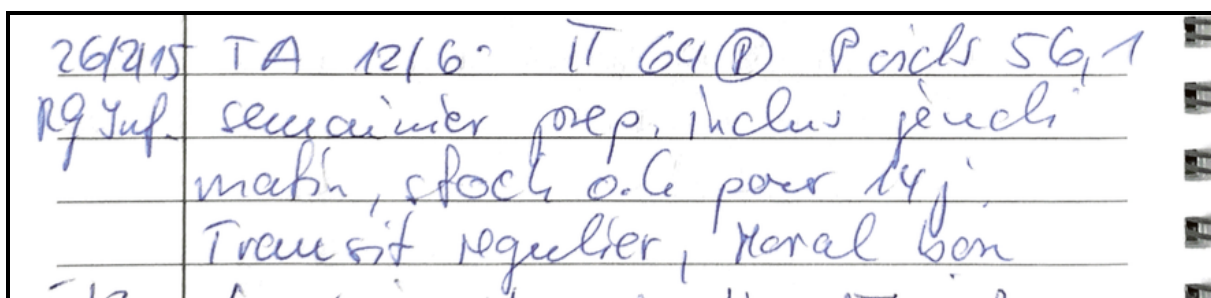 26/2/15 TA 12/6 · TT 64 Ⓟ Poids 56,1
Rg Inf. semainier prep. inclus jeudi
matin, stock o.k pour 14 j.
Transit regulier, Moral bon